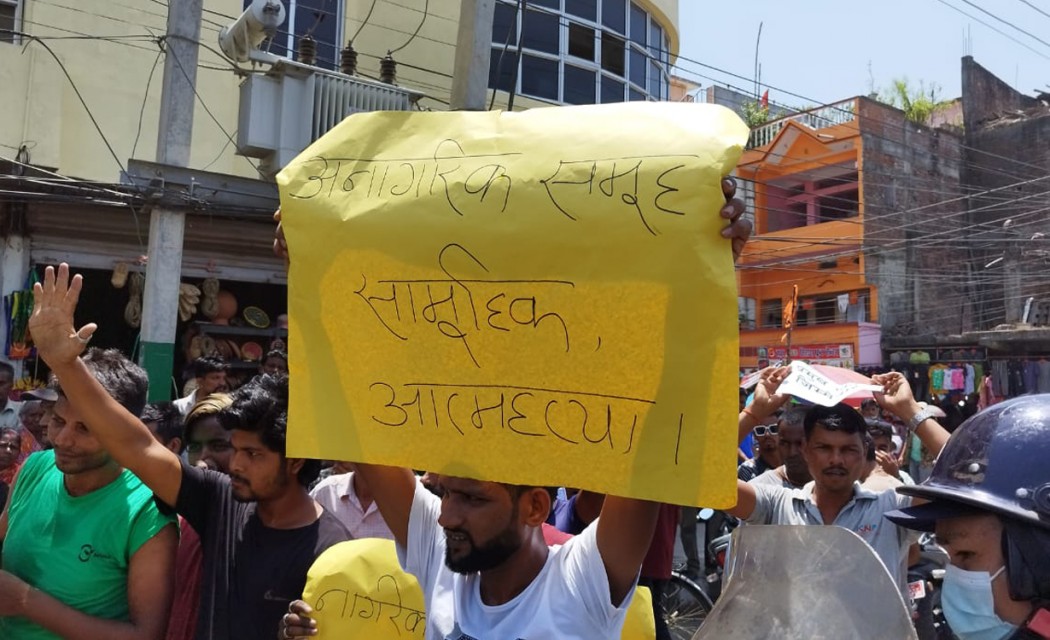 अनागरिक समूह
सामूहिक,
आत्महत्या।
नागरिक